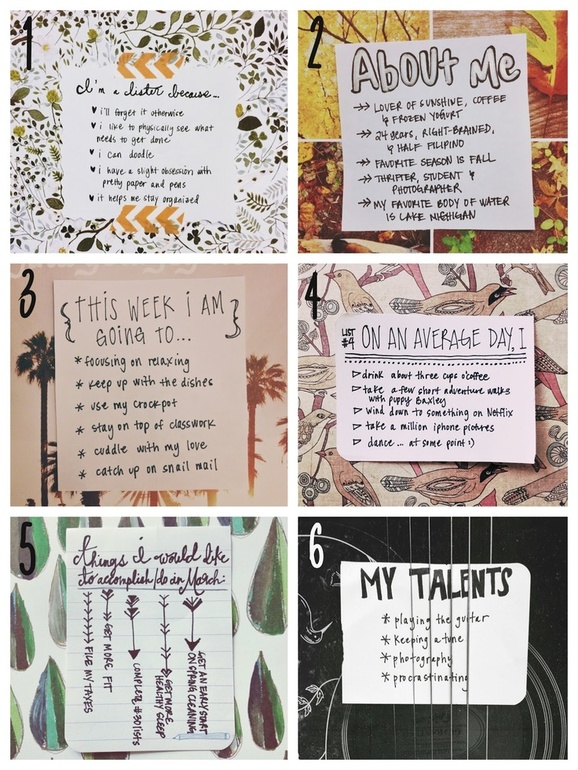 1
I'm a lister because...
♥ i'll forget it otherwise
♥ i like to physically see what
needs to get done
♥ i can doodle
♥ i have a slight obsession with
pretty paper and pens
♥ it helps me stay organized
2
ABOUT ME
→ LOVER OF SUNSHINE, COFFEE
& FROZEN YOGURT
→ 24 YEARS, RIGHT-BRAINED,
& HALF FILIPINO
→ FAVORITE SEASON IS FALL
→ THRIFTER, STUDENT &
PHOTOGRAPHER
→ MY FAVORITE BODY OF WATER
IS LAKE MICHIGAN
3
{THIS WEEK i AM
GOING TO...}
* focusing on relaxing
* keep up with the dishes
* use my crockpot
* stay on top of classwork
* cuddle with my love
* catch up on snail mail
4
LIST
#4 ON AN AVERAGE DAY, I
▷ drink about three cups o'coffee
▷ take a few short adventure walks
with puppy Baxley
▷ wind down to something on Netflix
▷ take a million iphone pictures
▷ dance... at some point :)
5
things i would like
to accomplish/do in March:
FILE MY TAXES
GET MORE FIT
COMPLETE #30LISTS
GET MORE
HEALTHY SLEEP
GET AN EARLY START
ON SPRING CLEANING
6
MY TALENTS
* playing the guitar
* keeping a tune
* photography
* procrastinating